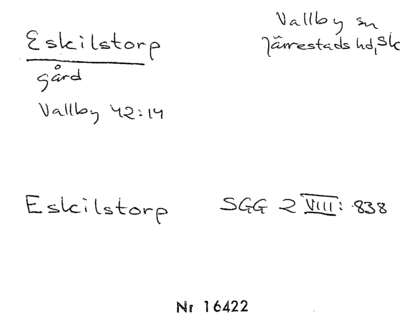 Eskilstorp
Vallby sn
Järrestads hd, Sk
gård
Vallby 42:14
Eskilstorp SGG 2 VIII: 838
Nr 16422